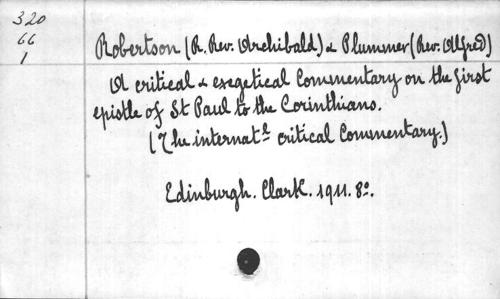 320
66
1
Robertson (R. Rev. Archibald) & Plummer (Rev. Alfred)
A critical & exegetical Commentary on the first
epistle of St Paul to the Corinthians.
(The internat.l critical Commentary.)
Edinburgh. Clark. 1911. 8o.